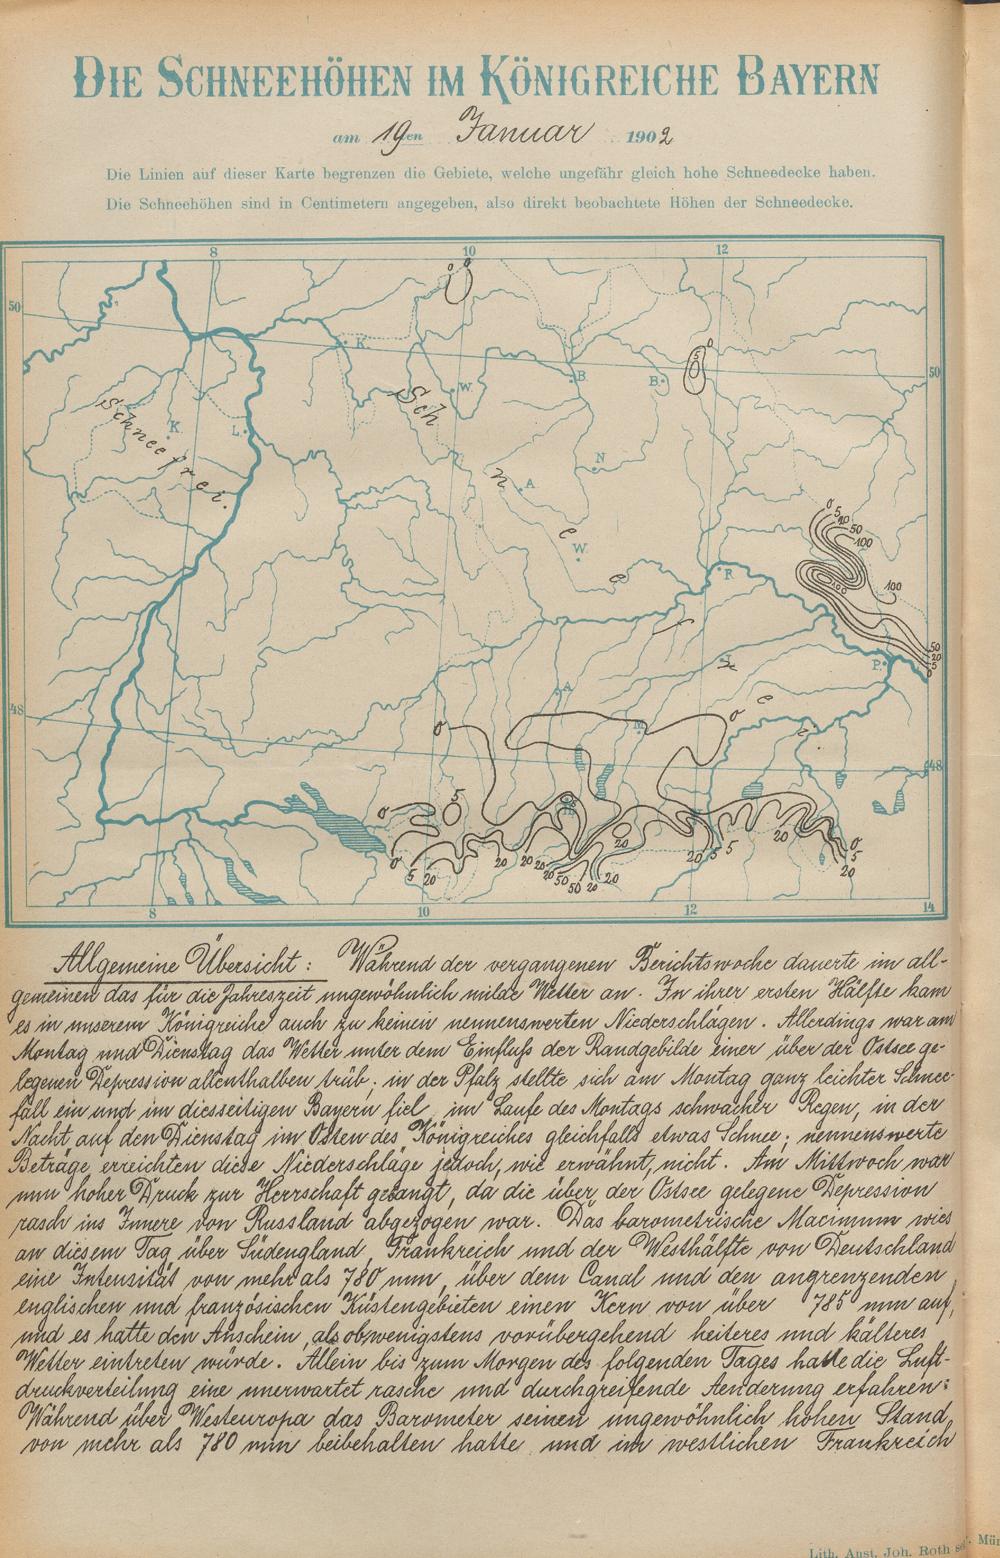 DIE SCHNEEHÖHEN IM KÖNIGREICHE BAYERN
am 19ten Januar 1902
Die Linien auf dieser Karte begrenzen die Gebiete, welche ungefähr gleich hohe Schneedecke haben.
Die Schneehöhen sind in Centimetern angegeben, also direkt beobachtete Höhen der Schneedecke.
8 10 12
0 0
50
K.
0
5
50
Sch
W.
B.
B.
Schneefrei.
K.
L.
N
n
A
0 5 10 50
100
e
W.
e
R
100
100
f
50
20
5
0
P.
r
A
e
48
0
0
M.
i
48
0
5
20
0
5 20
20 20 20 50 50 20 20
20 5 5
20
0
5
20
8 10 12 14
Allgemeine Übersicht: Während der vergangenen Berichtswoche dauerte im all-
gemeinen das für die Jahreszeit ungewöhnlich milde Wetter an. In ihrer ersten Hälfte kam
es in unserem Königreiche auch zu keinen nennenswerten Niederschlägen. Allerdings war am
Montag und Dienstag das Wetter unter dem Einfluss der Randgebilde einer über der Ostsee ge-
legenen Depression allenthalben trüb; in der Pfalz stellte sich am Montag ganz leichter Schnee-
fall ein und im diesseitigen Bayern fiel im Laufe des Montags schwacher Regen, in der
Nacht auf den Dienstag im Osten des Königreiches gleichfalls etwas Schnee; nennenswerte
Beträge erreichten diese Niederschläge jedoch, wie erwähnt, nicht. Am Mittwoch war
nun hoher Druck zur Herrschaft gelangt, da die über der Ostsee gelegene Depression
rasch ins Innere von Russland abgezogen war. Das barometrische Maximum wies
an diesem Tag über Südengland, Frankreich und der Westhälfte von Deutschland
eine Intensität von mehr als 780 mm, über dem Canal und den angrenzenden
englischen und französischen Küstengebieten einen Kern von über 785 mm auf,
und es hatte den Anschein, als ob wenigstens vorübergehend heiteres und kälteres
Wetter eintreten würde. Allein bis zum Morgen des folgenden Tages hatte die Luft-
druckverteilung eine unerwartet rasche und durchgreifende Aenderung erfahren:
Während über Westeuropa das Barometer seinen ungewöhnlich hohen Stand
von mehr als 780 mm beibehalten hatte und im westlichen Frankreich
Lith. Anst. Joh. Roth